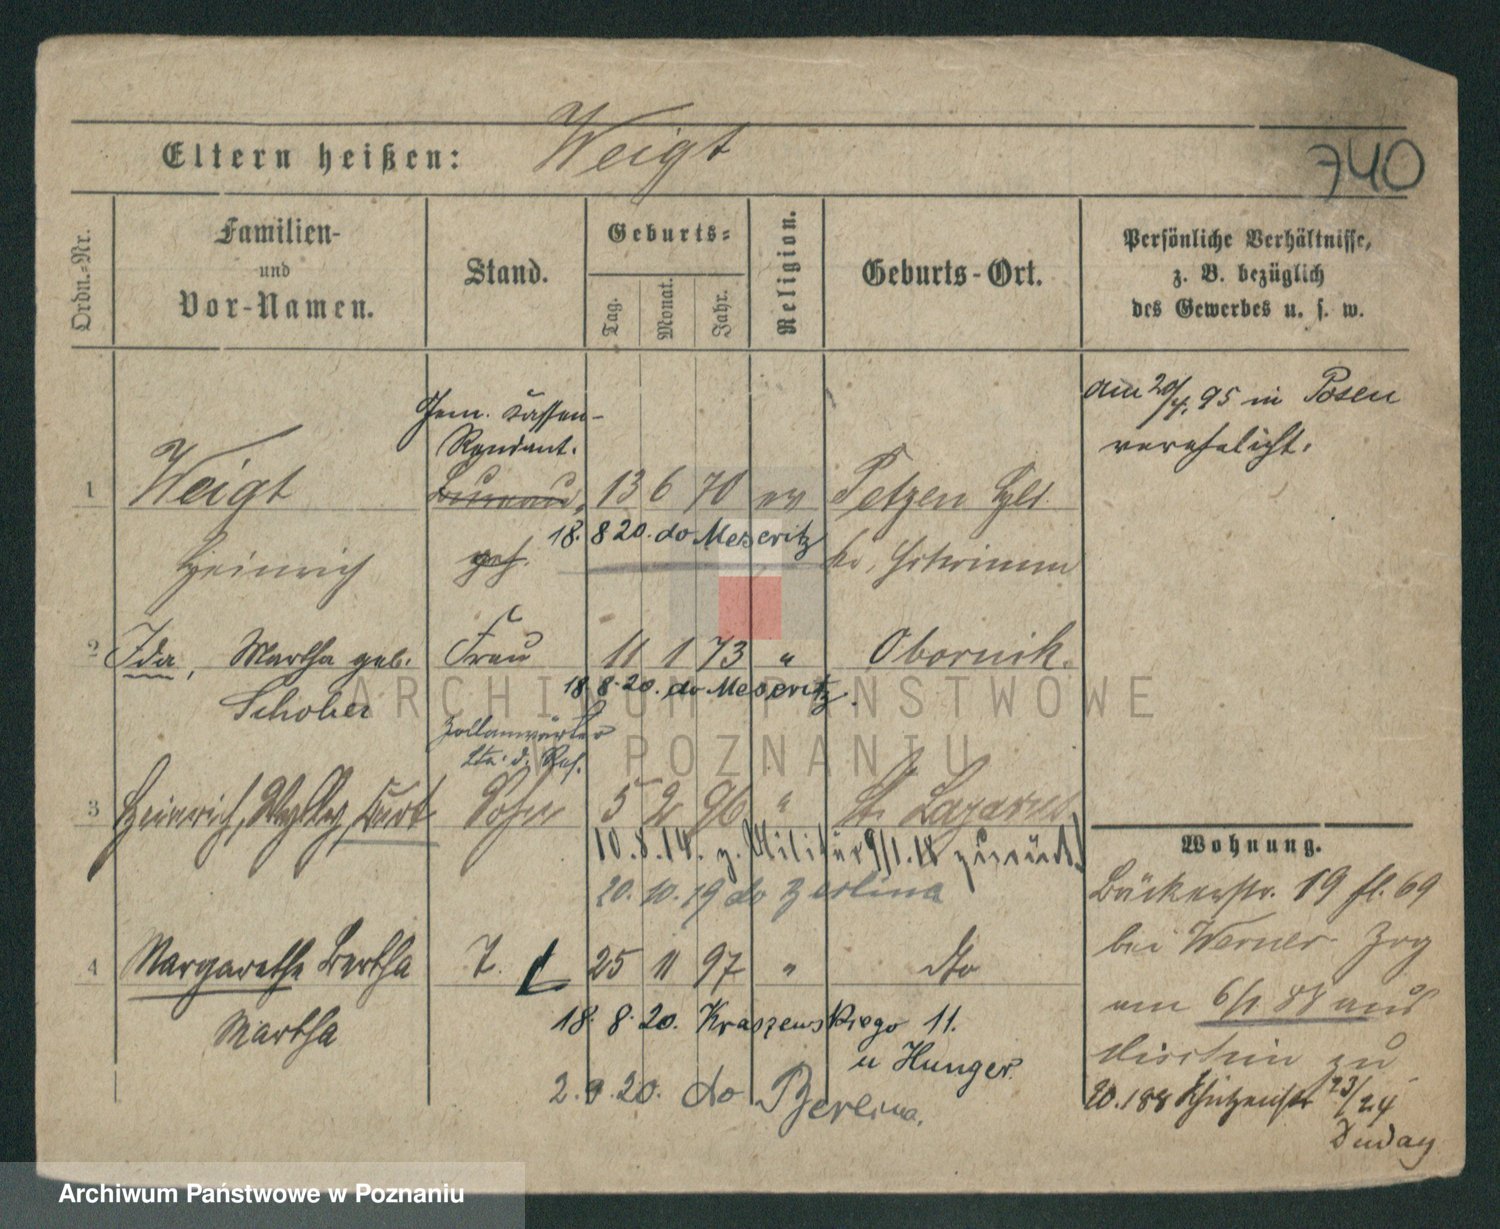 Eltern heißen: Weigt
740
Ordn.-Nr.
Familien-
und
Vor-Namen.
Stand.
Geburts-
Tag.
Monat.
Jahr.
Religion.
Geburts-Ort.
Persönliche Verhältnisse,
z. B. bezüglich
des Gewerbes u. s. w.
am 20/4. 95 in Posen
verehelicht.
Gem. Kassen-
Rendant.
1 Weigt Bureau 13 6 70 ev Petzen
18. 8 20. do Meseritz
Heinrich geh. Kr. Schrimm
2 Ida, Martha geb. Frau 11 1 73 " Obornik.
18. 8. 20. do Meseritz.
Schober
Zollanwärter
Ltn. d. Res.
3 Heinrich, Willy, Kurt Sohn 5 2 96 " St. Lazarus
10. 8. 14. z. Militär 9/1. 18 zurück
20. 10. 19 do Berlina
4 Margarethe Bertha T. 25 11 97 " dto
Martha
18. 8. 20. Kraszewskiego 11.
u Hunger.
2. 9. 20. do Berlina.
Wohnung.
Bäckerstr. 19 fl. 69
bei Werner Zog
am 6/1 88 aus
zu
20. 188 Schützenstr 23/24
Duday
ARCHIWUM PAŃSTWOWE
W POZNANIU
Archiwum Państwowe w Poznaniu